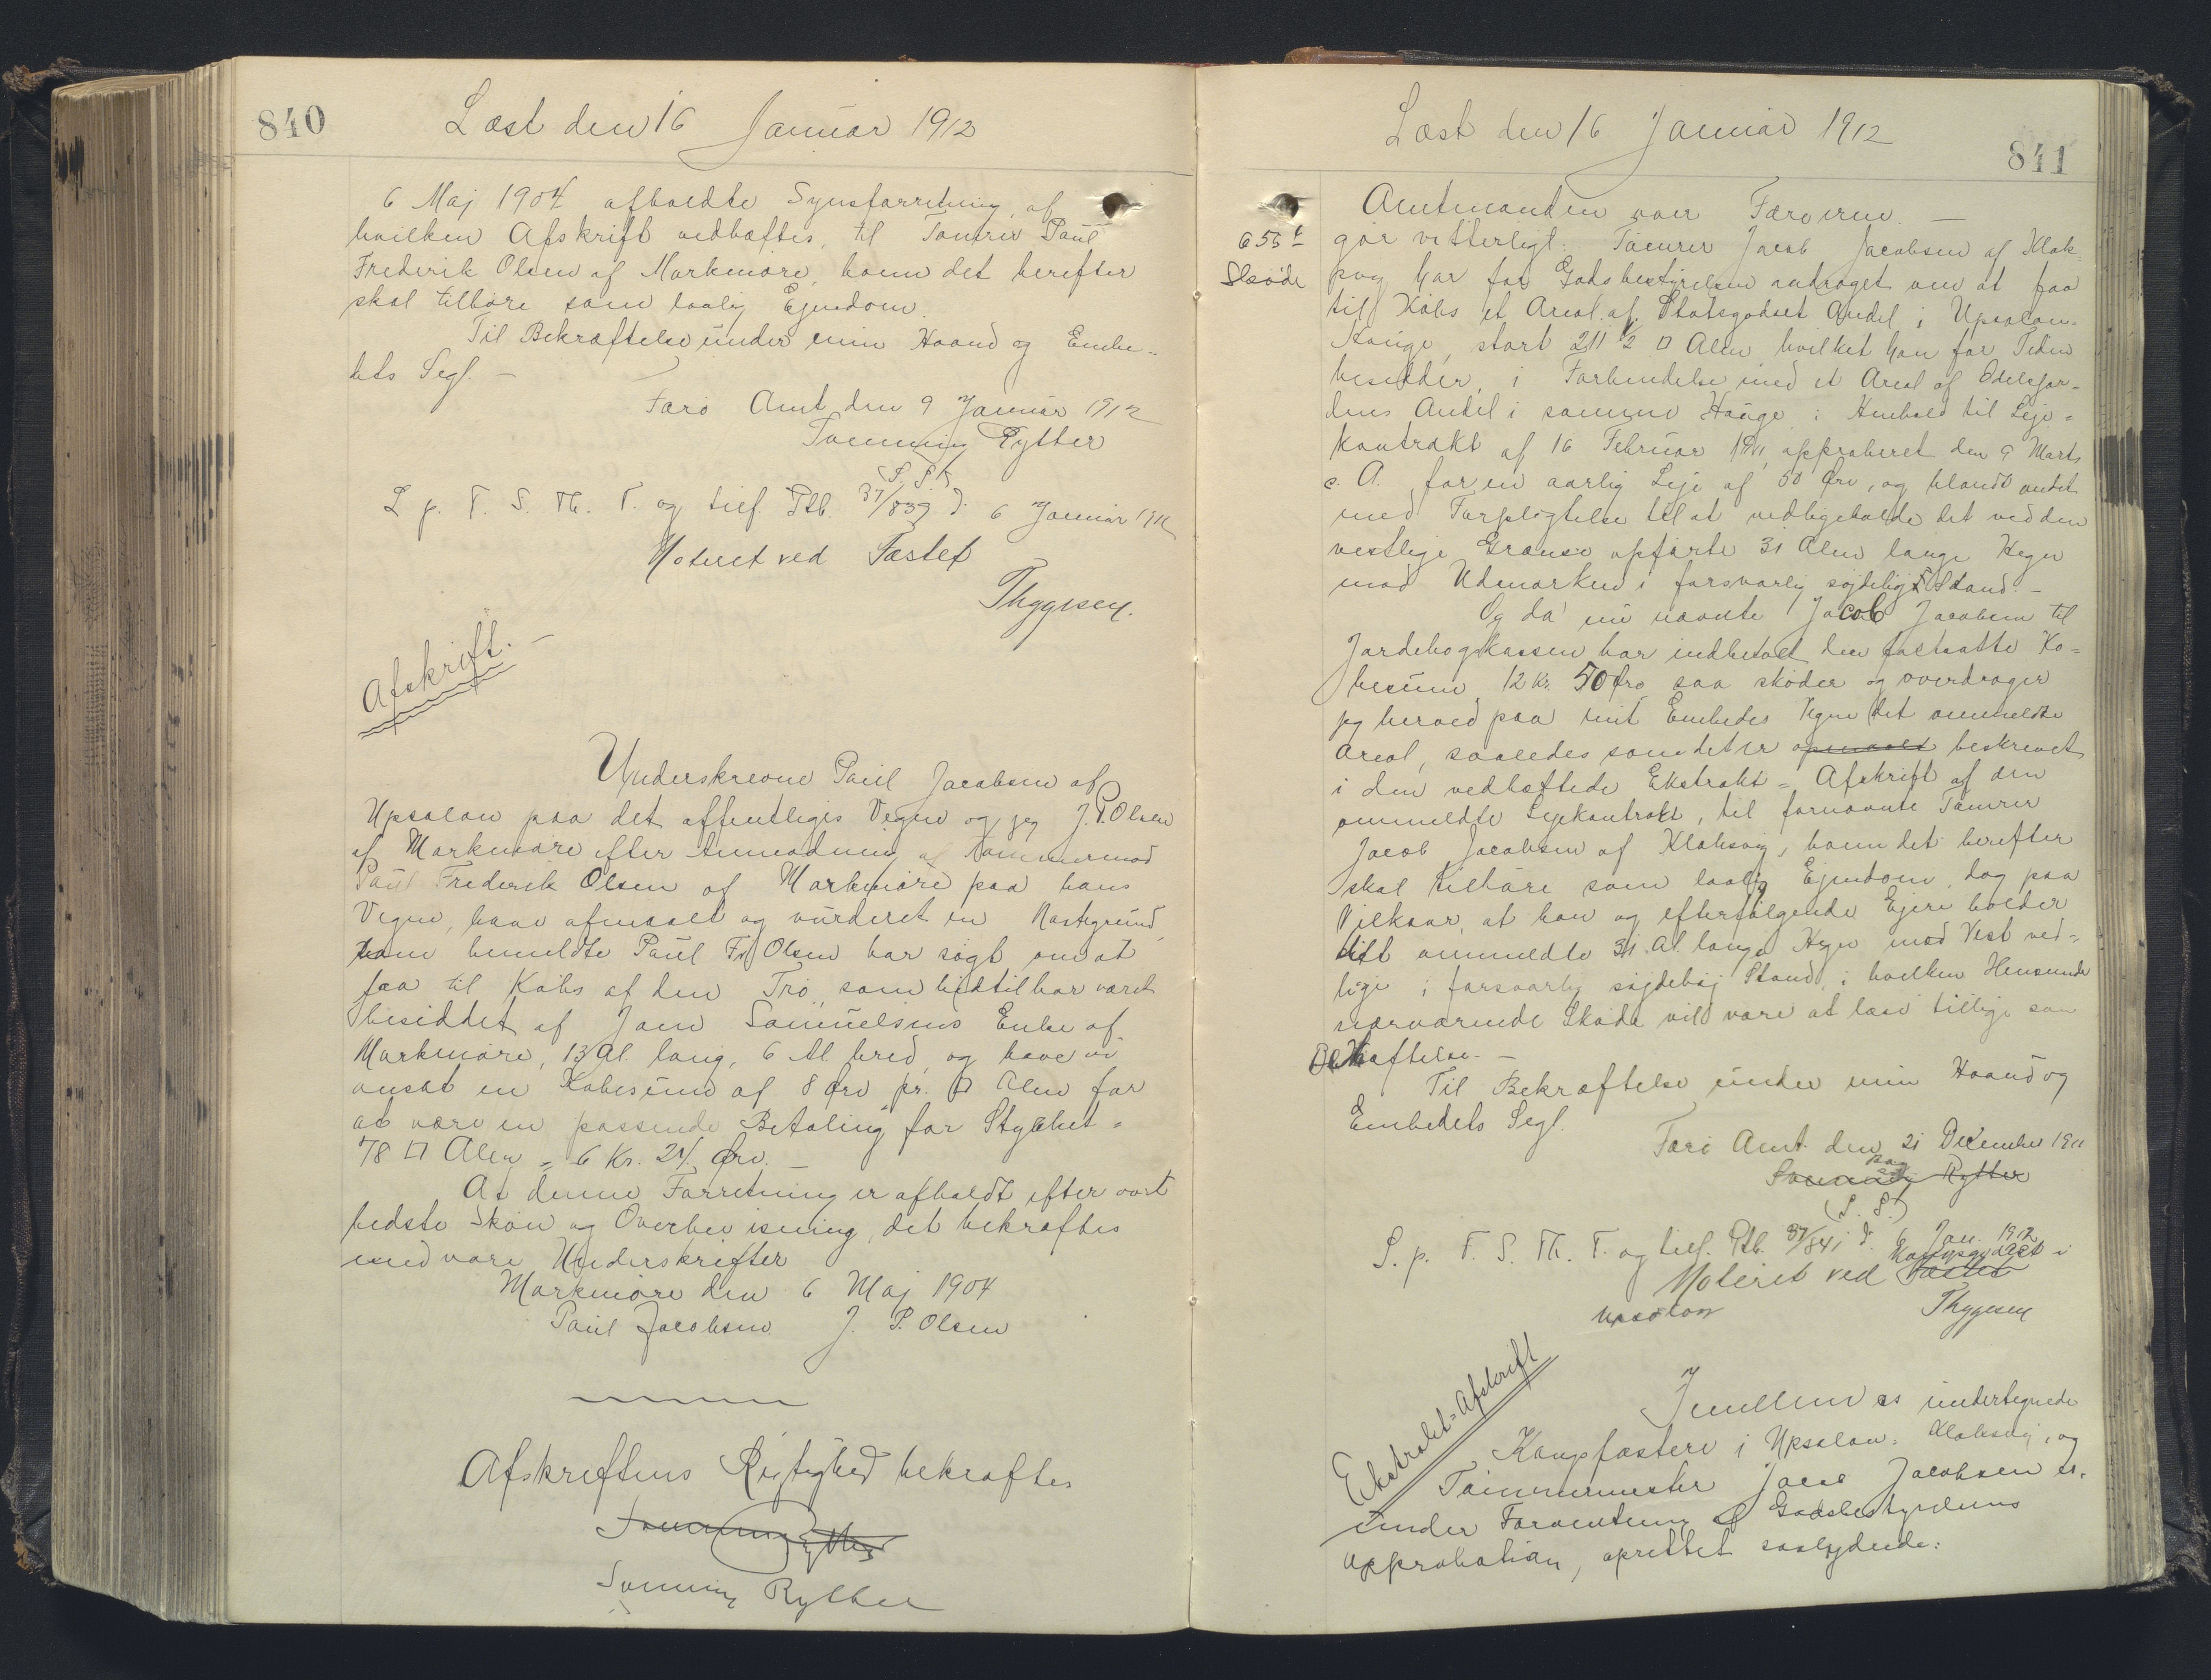 840
Læst den 16 Januar 1912
6 Maj 1904 afholdte Synsforretning, af
hvilken Afskrift vedhæftes, til Tømrer Paul
Frederik Olsen af Mørkmøre, ham det herefter
skal tilhøre som lovlig Ejendom.
Til Bekræftelse under min Haand og Embe-
dets Segl. —
Færø Amt den 9 Januar 1912
Svenning Rytter
(L. S.)
L p. F. S. Th. T. og tilf. Ptb. 37/839 d. 6 Januar 1912
Noteret ved Fæstet
Thygesen.
Afskrift. —
Underskrevne Paul Jacobsen af
Upsalon paa det offentliges Vegne og jeg J. P. Olsen
af Mørkmøre efter Anmodning af Tømmermand
Paul Frederik Olsen af Mørkmøre paa hans
Vegne, have afmaalt og vurderet en Nøstegrund,
som bemeldte Paul Fr. Olsen har søgt om at
faa til Købs af den Trø, som hidtil har været
besiddet af Joen Samuelsens Enke af
Mørkmøre, 13 Al. lang, 6 Al. bred, og have vi
anset en Købesum af 8 Øre pr. □ Alen for
at være en passende Betaling for Stykket =
78 □ Alen = 6 Kr. 24 Øre. —
At denne Forretning er afholdt efter vort
bedste Skøn og Overbevisning, det bekræftes
med vore Underskrifter
Mørkmøre den 6 Maj 1904
Paul Jacobsen J. P. Olsen
Afskriftens Rigtighed bekræftes
Svenning Rytter
Svenning Rytter
Læst den 16 Januar 1912
841
Amtmanden over Færøerne. —
655
Skøde
gør vitterligt: Tømrer Jacob Jacobsen af Klak-
svig har for Godsbestyrelsen andraget om at faa
til Købs et Areal af Statsgodset Andel i Upsalon-
Hauge, stort 211 1/2 □ Alen hvilket han for Tiden
besidder, i Forbindelse med et Areal af Odelsjor-
dens Andel i samme Hauge i Henhold til Leje-
kontrakt af 16 Februar 1911, approberet den 9 Marts
s. A. for en aarlig Leje af 50 Øre, og blandt andet
med Forpligtelse til at vedligeholde det ved den
vestlige Grænse opførte 31 Alen lange Hegn
mod Udmarken i forsvarlig søjdeligt Stand. —
Og da nu nævnte Jacob Jacobsen til
Jordebogskassen har indbetalt den fastsatte Kø-
besum 12 Kr. 50 Øre saa skøder og overdrager
jeg herved paa mit Embedes Vegne det ommeldte
Areal, saaledes som det er opmaalt beskrevet
i den vedhæftede Ekstrakt-Afskrift af den
ommeldte Lejekontrakt, til fornævnte Tømrer
Jacob Jacobsen af Klaksvig, ham det herefter
skal tilhøre som lovlig Ejendom, dog paa
Vilkaar, at han og efterfølgende Ejere holder
det ommeldte 31 Al. lange Hegn mod Vest ved-
lige i forsvarlig søjdehøj Stand, i hvilken Henseende
nærværende Skøde vil være at læse tillige som
Behæftelse. —
Til Bekræftelse under min Haand og
Embedets Segl.
Færø Amt den 21 December 1911
Svenning Rytter
(L. S.)
L. p. F. S. Th. T. og tilf. Ptb. 37/841 d. 6 Jan. 1912
Noteret ved Fæstet
Kongsgodset i
Upsalon
Thygesen
Ekstrakt-Afskrift
Imellem os undertegnede
Kongsfæstere i Upsalon, Klaksvig, og
Tømmermester Jacob Jacobsen er,
under Forventning af Godsbestyrelsens
Approbation, oprettet saalydende: